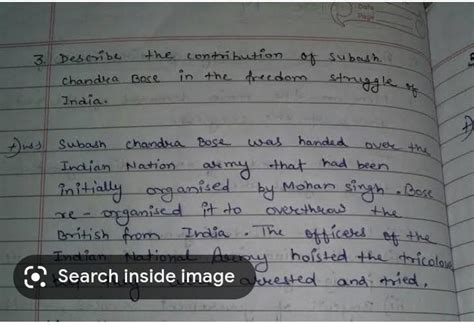 Date
Page
3. Describe the contribution of Subash
Chandra Bose in the freedom struggle of
India.
Ans) Subash Chandra Bose was handed over the
Indian Nation army that had been
initially organised by Mohan singh. Bose
re-organised it to overthrow the
British from India. The officers of the
Indian National Army hoisted the tricolour
Search inside image
arrested and tried.